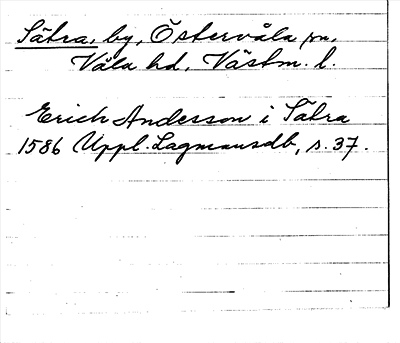 Sätra, by, Östervåla sn,
Våla hd, Västm. l.
Erich Andersson i Sätra
1586 Uppl. Lagmansdb, s. 37.